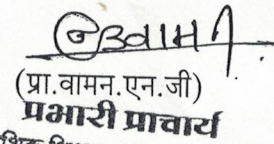 (प्रा.वामन.एन.जी)
प्रभारी प्राचार्य